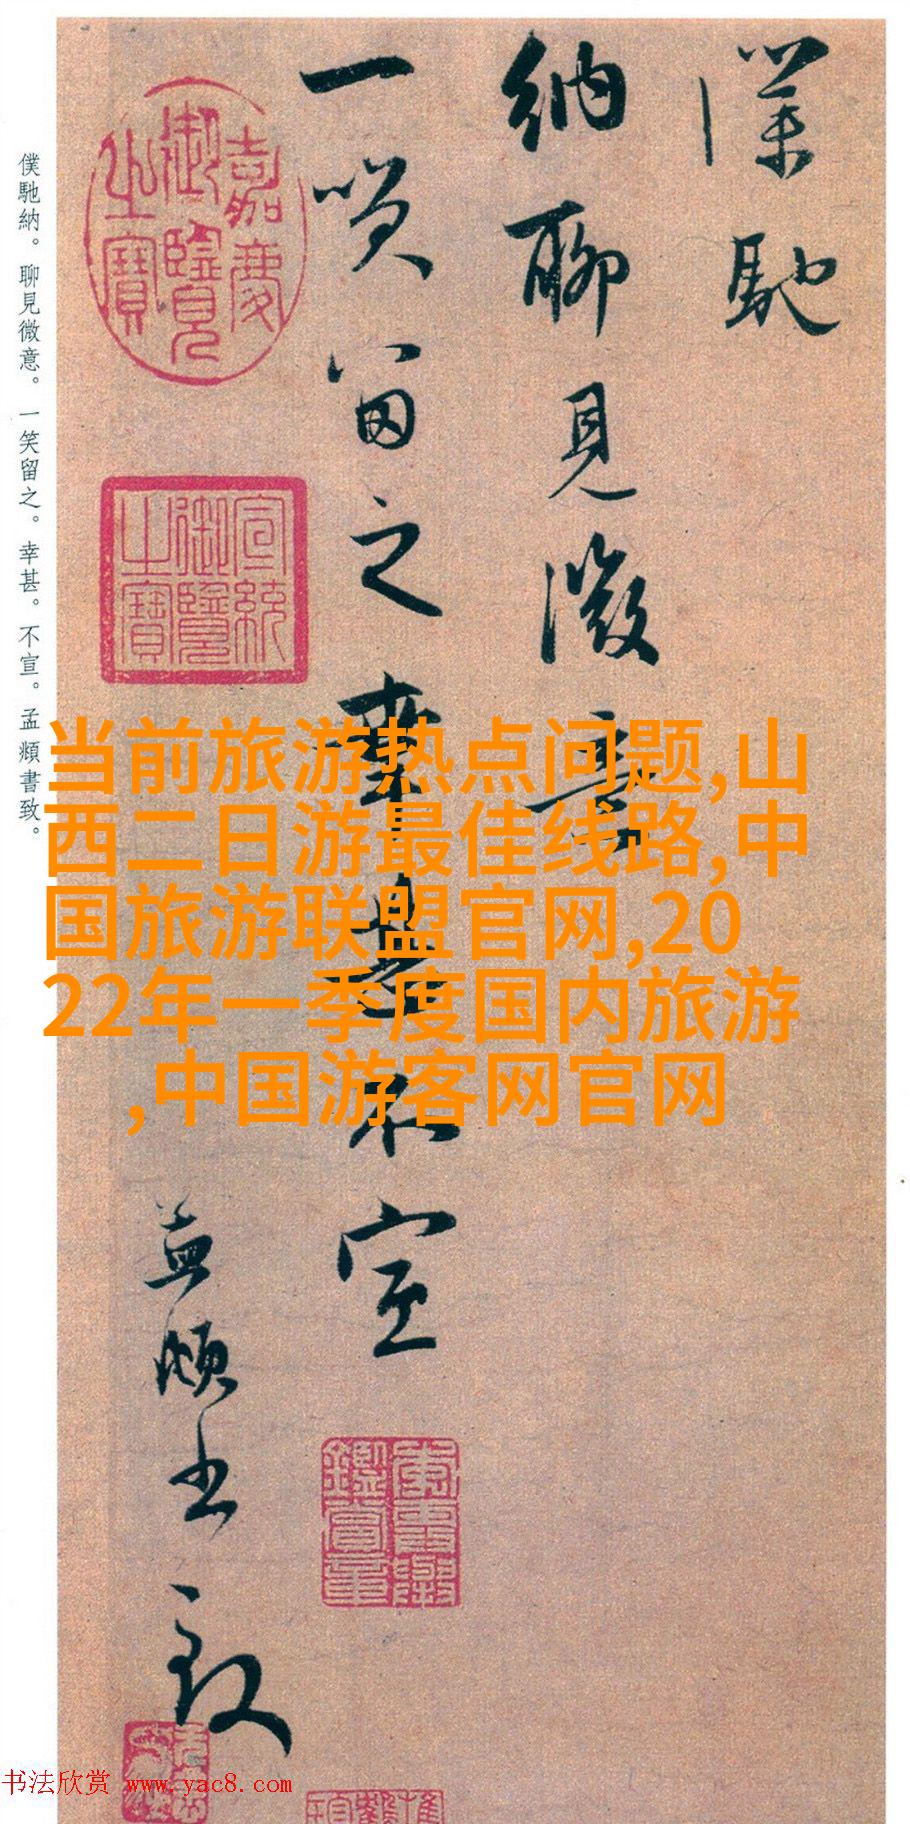 僕馳
納聊見微意
一笑留之幸甚不宣
孟頫書致
嘉慶御覽之寶
宣統御覽之寶
僕馳納。聊見微意。一笑留之。幸甚。不宣。孟頫書致。
当前旅游热点问题,山
西二日游最佳线路,中
国旅游联盟官网,20
22年一季度国内旅游
,中国游客网官网
书法欣赏 www.yac8.com